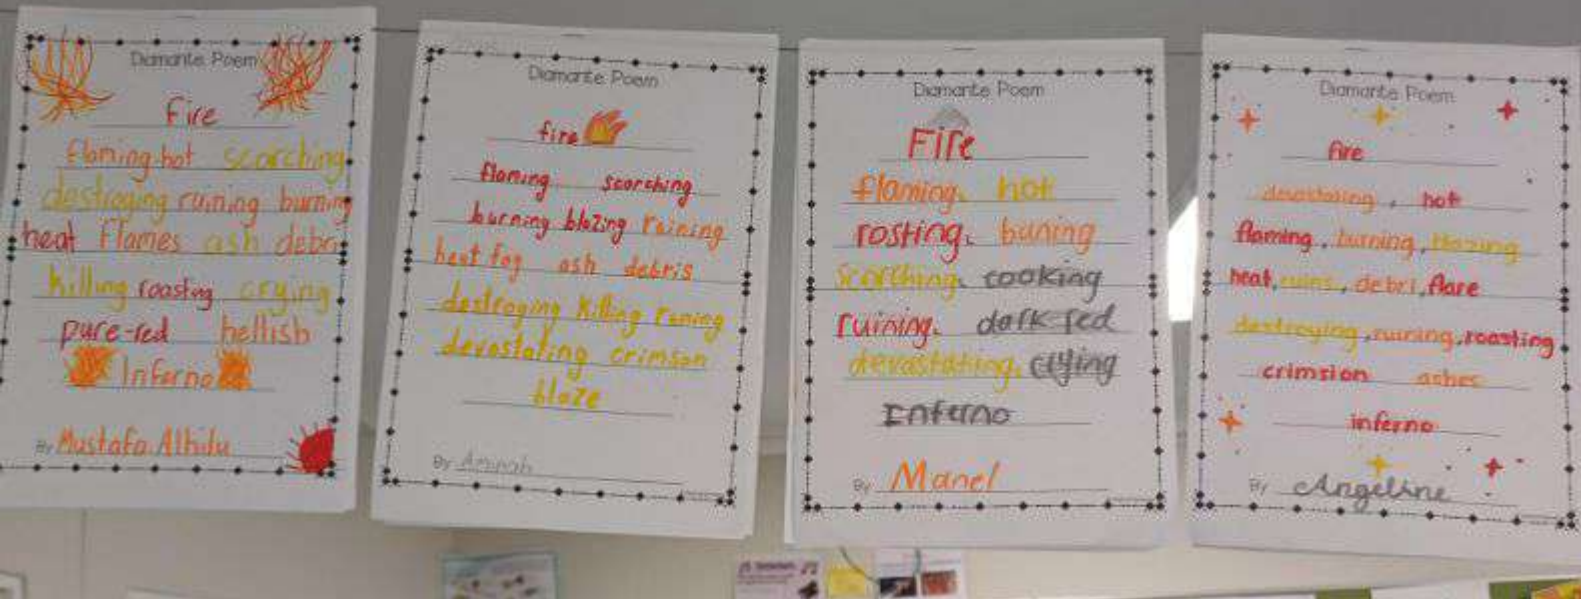 Diamante Poem
Fire
flaming-hot scorching
destroying ruining burning
heat flames ash debris
killing roasting crying
pure-red hellish
Inferno
By Mustafa Alhilu
Diamante Poem
fire
flaming scorching
burning blazing ruining
heat fog ash debris
destroying killing runing
devastating crimson
blaze
By Aminah
Diamante Poem
Fire
flaming, hot
rosting, buning
scorching, cooking
ruining, dark-red
devastating, crying
Inferno
By Manel
Diamante Poem
fire
devastating, hot
flaming, burning, blazing
heat, ruins, debri, flare
destroying, ruining, roasting
crimsion ashes
inferno
By Angeline